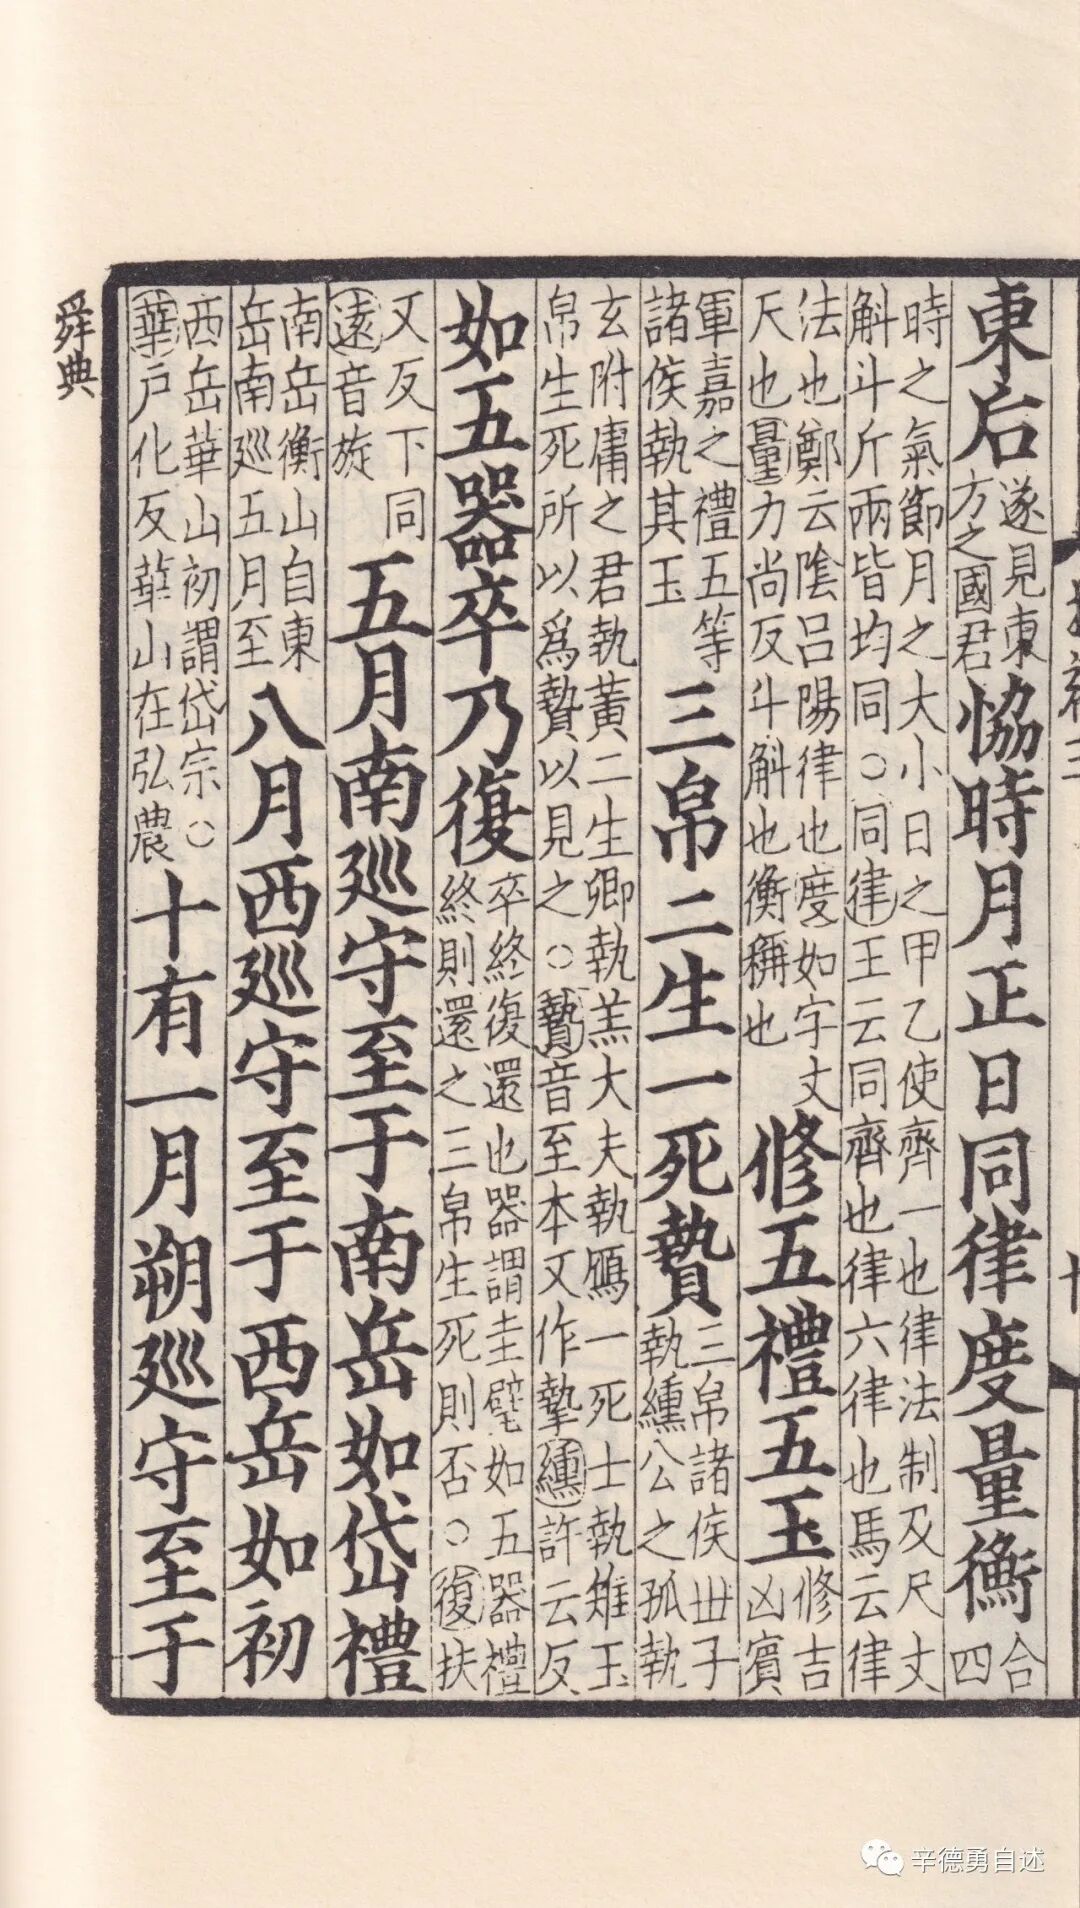 東后遂見東方之國君恊時月正日同律度量衡合四
時之氣節月之大小日之甲乙使齊一也律法制及尺丈
斛斗斤兩皆均同○同律王云同齊也律六律也馬云律
法也鄭云陰呂陽律也度如字丈尺也量力尚反斗斛也衡稱也修五禮五玉修吉凶賓
軍嘉之禮五等諸侯執其玉三帛二生一死贄三帛諸侯世子執纁公之孤執
玄附庸之君執黃二生卿執羔大夫執鴈一死士執雉玉
帛生死所以爲贄以見之○贄音至本又作摯纁許云反
如五器卒乃復卒終復還也器謂圭璧如五器禮終則還之三帛生死則否○復扶
又反下同還音旋五月南巡守至于南岳如岱禮
南岳衡山自東岳南巡五月至八月西巡守至于西岳如初
西岳華山初謂岱宗○華戶化反華山在弘農十有一月朔巡守至于
舜典
辛德勇自述